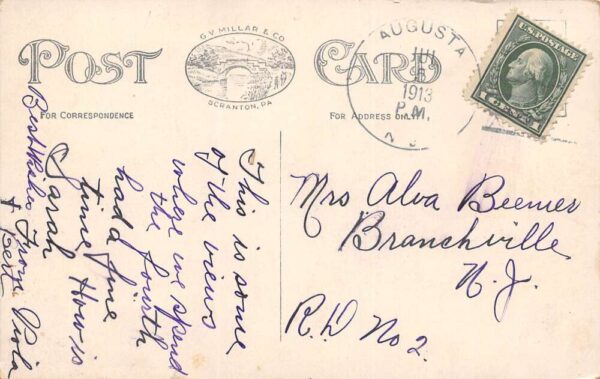 POST CARD
G.V. MILLAR & CO
SCRANTON, PA.
FOR CORRESPONDENCE
FOR ADDRESS ONLY
AUGUSTA
JUL
1913
P.M.
N J
U.S. POSTAGE
1 CENT 1
This is some
of the views
where we spend
the fourth
had a fine
time How is
Sarah
Best Wishes From Viola
+ Bert
Mrs Alva Beemer
Branchville
N. J.
R. D No 2.